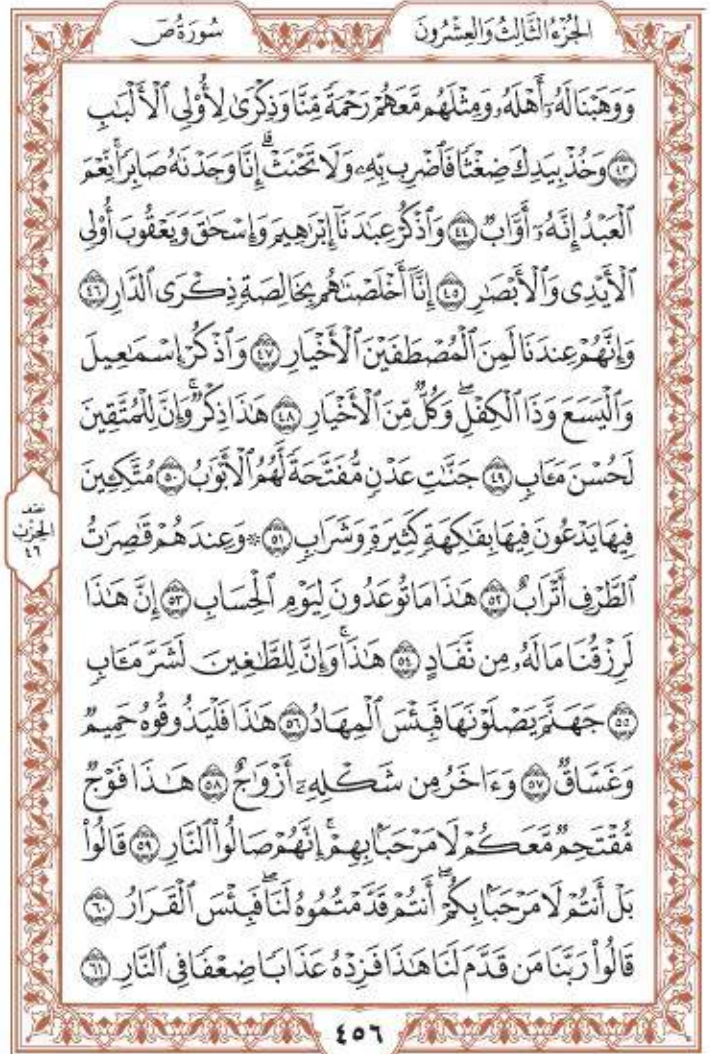 الجُزْءُ الثَّالِثُ وَالعِشْرُونَ
سُورَةُ صٓ
وَوَهَبْنَا لَهُۥٓ أَهْلَهُۥ وَمِثْلَهُم مَّعَهُمْ رَحْمَةً مِّنَّا وَذِكْرَىٰ لِأُو۟لِى ٱلْأَلْبَٰبِ
﴿٤٣﴾ وَخُذْ بِيَدِكَ ضِغْثًا فَٱضْرِب بِّهِۦ وَلَا تَحْنَثْ ۗ إِنَّا وَجَدْنَٰهُ صَابِرًا ۚ نِّعْمَ
ٱلْعَبْدُ ۖ إِنَّهُۥٓ أَوَّابٌ ﴿٤٤﴾ وَٱذْكُرْ عِبَٰدَنَآ إِبْرَٰهِيمَ وَإِسْحَٰقَ وَيَعْقُوبَ أُو۟لِى
ٱلْأَيْدِى وَٱلْأَبْصَٰرِ ﴿٤٥﴾ إِنَّآ أَخْلَصْنَٰهُم بِخَالِصَةٍ ذِكْرَى ٱلدَّارِ ﴿٤٦﴾
وَإِنَّهُمْ عِندَنَا لَمِنَ ٱلْمُصْطَفَيْنَ ٱلْأَخْيَارِ ﴿٤٧﴾ وَٱذْكُرْ إِسْمَٰعِيلَ
وَٱلْيَسَعَ وَذَا ٱلْكِفْلِ ۖ وَكُلٌّ مِّنَ ٱلْأَخْيَارِ ﴿٤٨﴾ هَٰذَا ذِكْرٌ ۚ وَإِنَّ لِلْمُتَّقِينَ
لَحُسْنَ مَـَٔابٍ ﴿٤٩﴾ جَنَّٰتِ عَدْنٍ مُّفَتَّحَةً لَّهُمُ ٱلْأَبْوَٰبُ ﴿٥٠﴾ مُتَّكِـِٔينَ
فِيهَا يَدْعُونَ فِيهَا بِفَٰكِهَةٍ كَثِيرَةٍ وَشَرَابٍ ﴿٥١﴾ ۞ وَعِندَهُمْ قَٰصِرَٰتُ
ٱلطَّرْفِ أَتْرَابٌ ﴿٥٢﴾ هَٰذَا مَا تُوعَدُونَ لِيَوْمِ ٱلْحِسَابِ ﴿٥٣﴾ إِنَّ هَٰذَا
لَرِزْقُنَا مَا لَهُۥ مِن نَّفَادٍ ﴿٥٤﴾ هَٰذَا ۚ وَإِنَّ لِلطَّٰغِينَ لَشَرَّ مَـَٔابٍ
﴿٥٥﴾ جَهَنَّمَ يَصْلَوْنَهَا فَبِئْسَ ٱلْمِهَادُ ﴿٥٦﴾ هَٰذَا فَلْيَذُوقُوهُ حَمِيمٌ
وَغَسَّاقٌ ﴿٥٧﴾ وَءَاخَرُ مِن شَكْلِهِۦٓ أَزْوَٰجٌ ﴿٥٨﴾ هَٰذَا فَوْجٌ
مُّقْتَحِمٌ مَّعَكُمْ ۖ لَا مَرْحَبًۢا بِهِمْ ۚ إِنَّهُمْ صَالُوا۟ ٱلنَّارِ ﴿٥٩﴾ قَالُوا۟
بَلْ أَنتُمْ لَا مَرْحَبًۢا بِكُمْ ۖ أَنتُمْ قَدَّمْتُمُوهُ لَنَا ۖ فَبِئْسَ ٱلْقَرَارُ ﴿٦٠﴾
قَالُوا۟ رَبَّنَا مَن قَدَّمَ لَنَا هَٰذَا فَزِدْهُ عَذَابًا ضِعْفًا فِى ٱلنَّارِ ﴿٦١﴾
نصف
الحزب
٤٦
٤٥٦